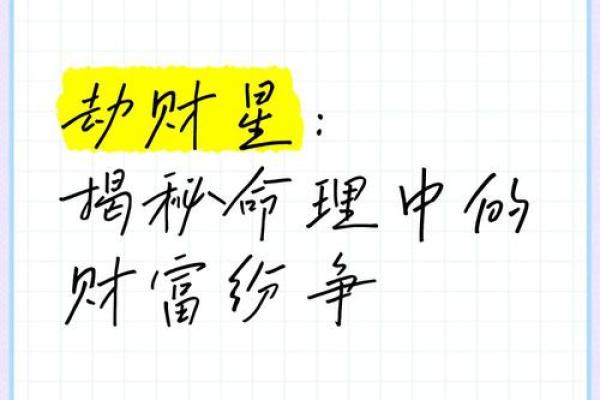 劫财星：
揭秘命理中的
财富纷争